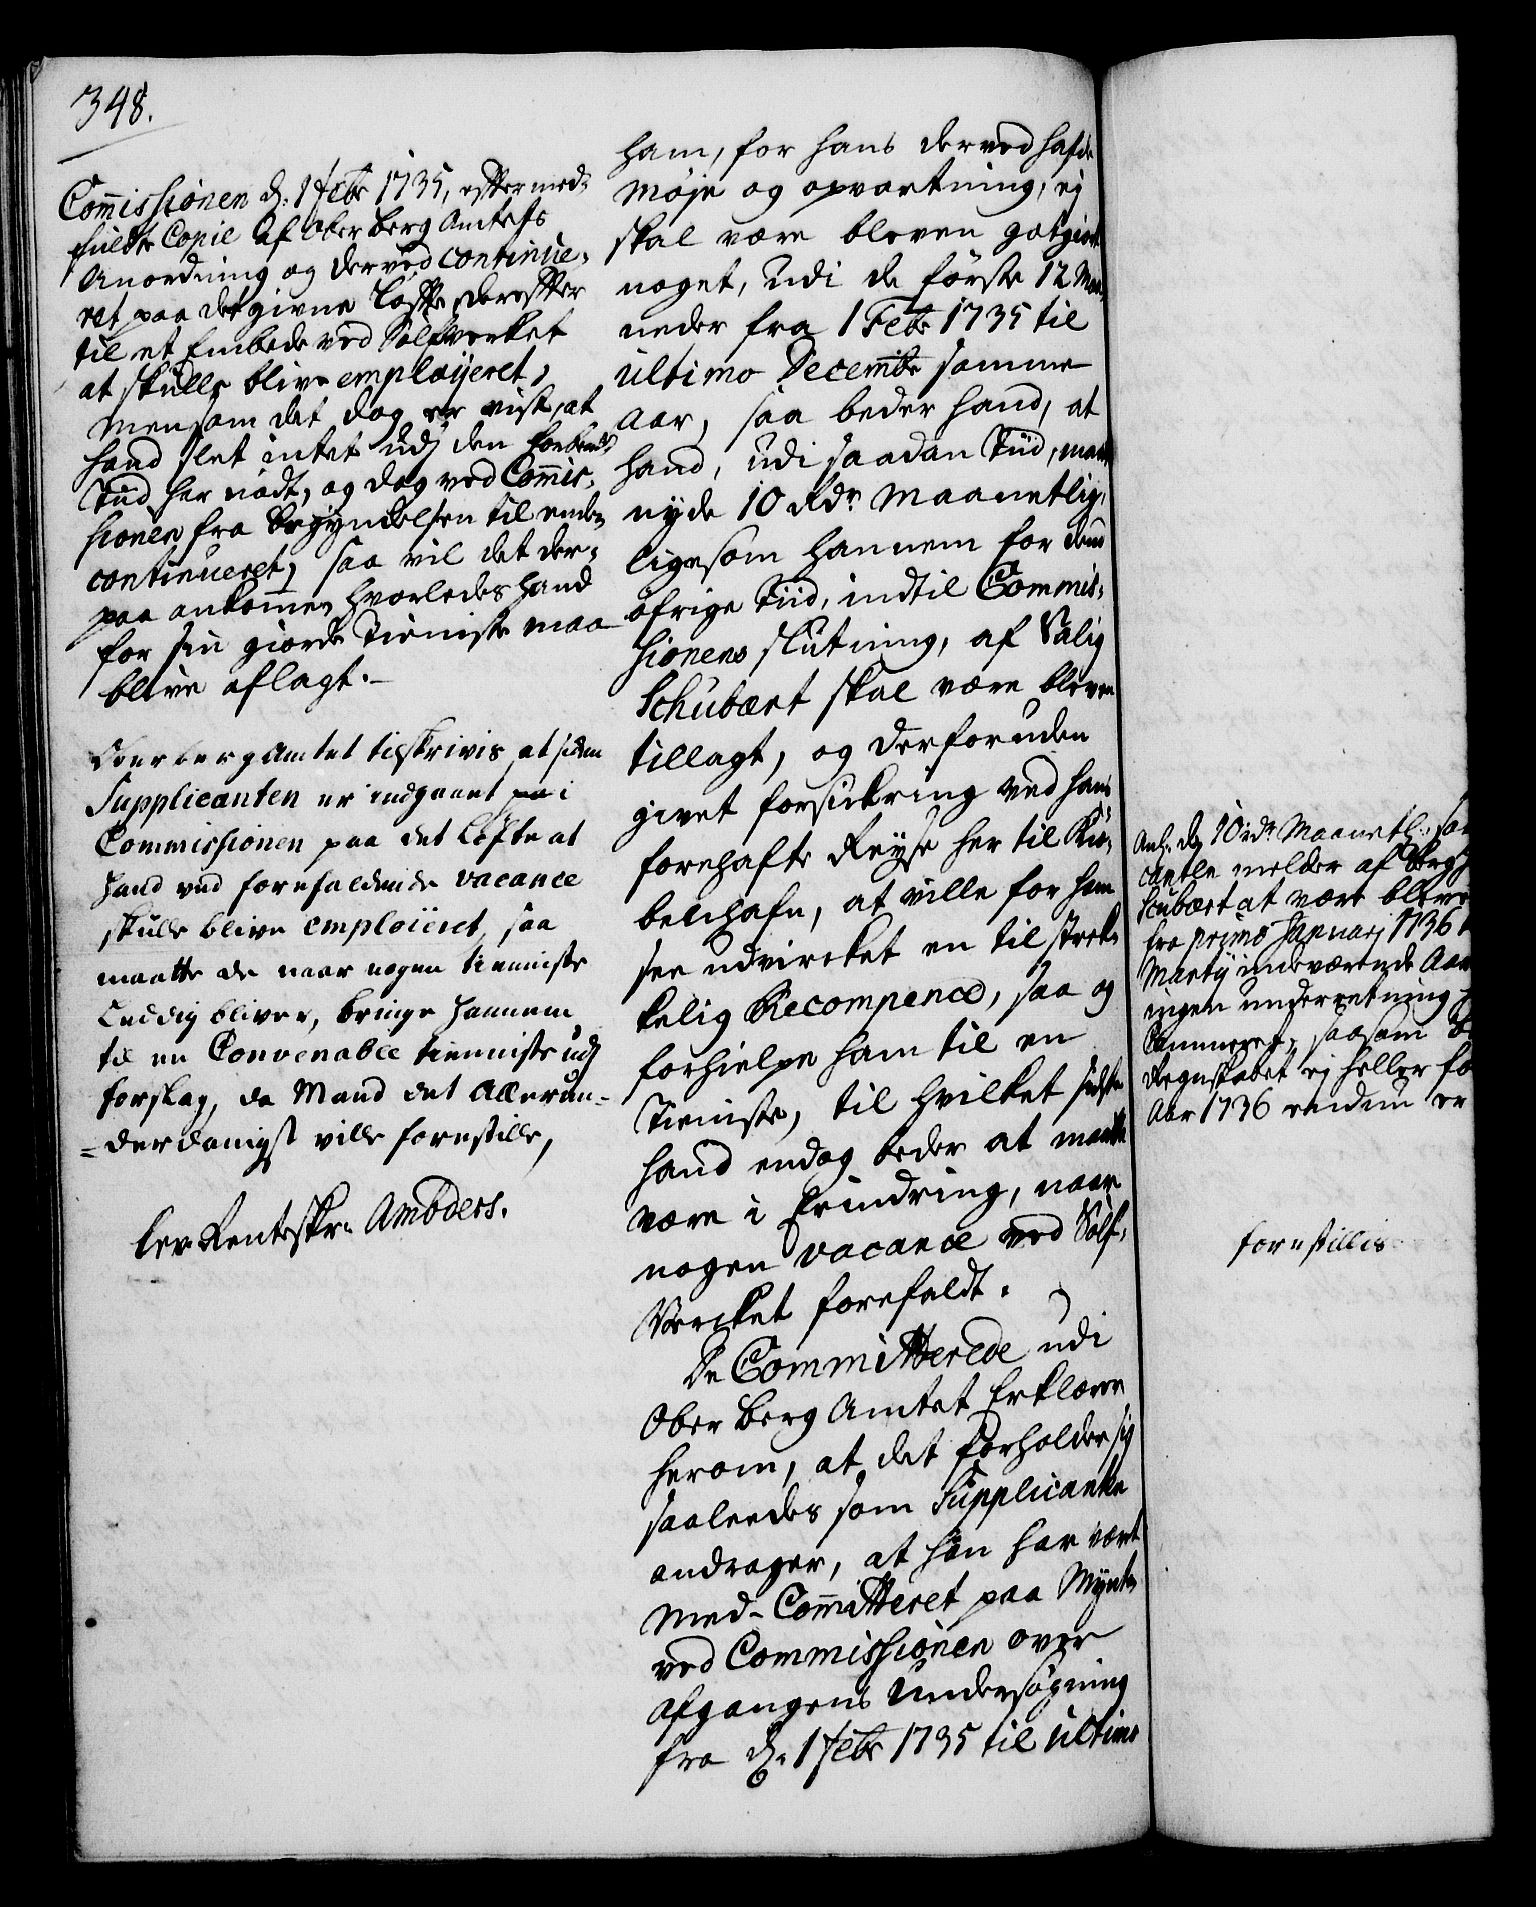 348.
Commissionen d. 1 Febr 1735, efter med-
fuldte Copie af Ober Berg Amtets
Anordning og derved continue-
ret paa det givne Løfte, derefter
til et Embede ved Sølfverket
at skulle blive emploijeret,
men som det dog er vist, at
hand slet intet udj den
Tiid har nødt, og dog ved Commis-
sionen fra Begyndelsen til enden
continueret, saa vil det der-
paa ankomme, hvorledes hand
for sin giorde Tieniste maa
blive aflagt.
Oberbergamtet tilskrivis, at siden
Supplicanten er indgaaet i
Commissionen paa det Løfte at
hand ved forefaldende vacance
skulle blive emploiieret, saa
maatte de naar nogen tienniste
Leedig bliver, bringe hannem
til en Convenable tienniste udj
forslag, da Mand det Allerun-
-derdanigst ville forestille,
Lev. Renteskr. Ambders.
ham, for hans derved hafde
Møje og opvartning, ej
skal være bleven gotgiort
noget, udi de første 12 Maa-
neder fra 1 Febr 1735 til
ultimo Decembr samme
Aar, saa beder hand, at
hand, udi saadan Tiid, maatte
nyde 10 Rdr Maanetlig,
ligesom hannem for den
øfrige Tiid, indtil Commis-
sionens slutning, af Salig
Schubært skal være bleven
tillagt, og derforuden
givet forsickring ved hans
forehafte Reyse her til Kiø-
benhafn, at ville for ham
see udvircket en tilstreck-
kelig Recompence, saa og
forhielpe ham til en
Tieniste, til hvilket sidste
hand endog beder at maatte
være i Erindring, naar
nogen vacance ved Sølf-
Vercket forefaldt.
De Committerede udi
Ober Berg Amtet Erklærer
herom, at det forholder sig
saaleedes som Supplicanten
andrager, at han har vært
Med-Committeret paa Mynten
ved Commissionen over
Afgangens Undersøgning
fra d. 1 Febr 1735 til ultimo
Anl. de 10 rdr Maanetl. som
melder af Berg
Scubært at være bleven
fra primo Januarj 1736
Martij indeværende Aar
ingen underretning
Cammeret, saasom
Regnskabet ej heller for
Aar 1736 endnu er
forestillis